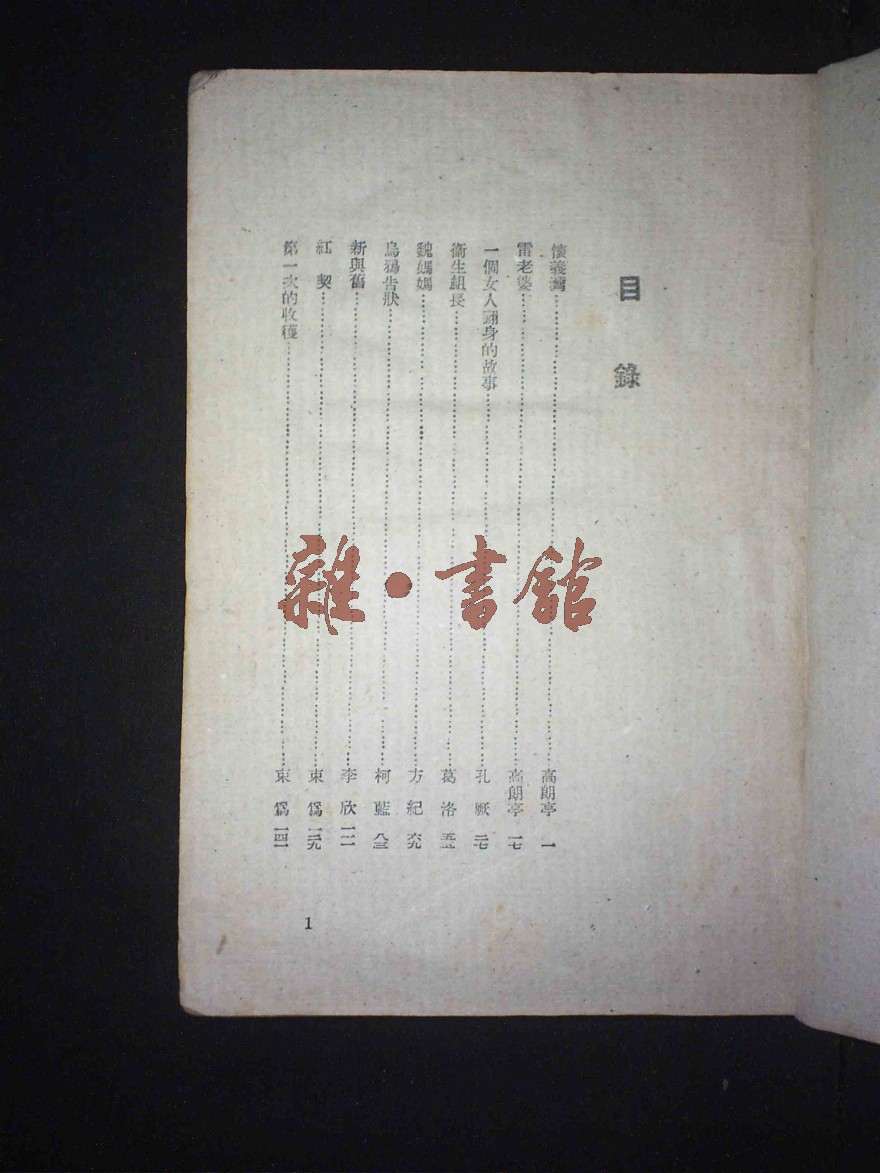 目錄
懷義灣……高朗亭 一
雷老婆……高朗亭 一七
一個女人翻身的故事……孔厥 二七
衞生組長……葛洛
魏媽媽……方紀 六九
烏鴉告狀……柯藍 八三
新與舊……李欣
紅契……束爲 一二九
第一次的收穫……束爲 一四一
1
雜·書館